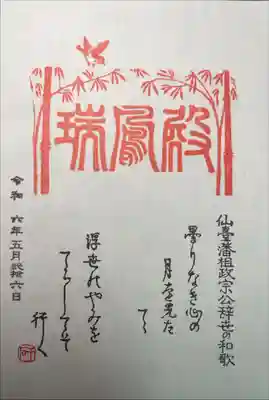 瑞鳳殿
仙臺藩祖政宗公辞世の和歌
曇りなき心の
月を先た
てゝ
浮世のやみを
てらしてそ
行く
令和六年五月弐拾六日